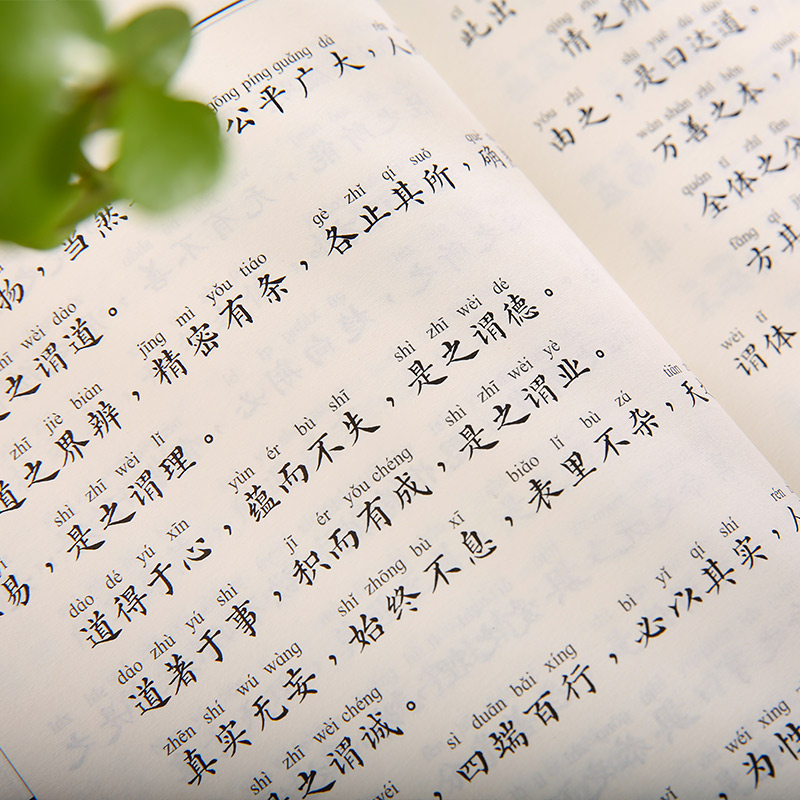 gōng píng guǎng dà
扬，当然 公平广大，人
wèi dào
之谓道。
zhī jiè biàn jīng mì yǒu tiáo gè zhǐ qí suǒ
道之界辨，精密有条，各止其所，确
shì zhī wèi lǐ
易，是之谓理。
dào dé yú xīn yùn ér bù shī shì zhī wèi dé
道得于心，蕴而不失，是之谓德。
dào zhù yú shì jī ér yǒu chéng shì zhī wèi yè
道著于事，积而有成，是之谓业。
zhēn shí wú wàng shǐ zhōng bù xī biǎo lǐ bù zá
真实无妄，始终不息，表里不杂，天
shì zhī wèi chéng
是之谓诚。
sì duān bǎi xíng bì yǐ qí shí rén
四端百行，必以其实，人
wéi xìng
为性
此出
情之所
yóu zhī shì yuē dá dào
由之，是曰达道。
wàn shàn zhī běn
万善之本，
quán tǐ zhī fēn
全体之分
fāng qí
方其
wèi tǐ
谓体